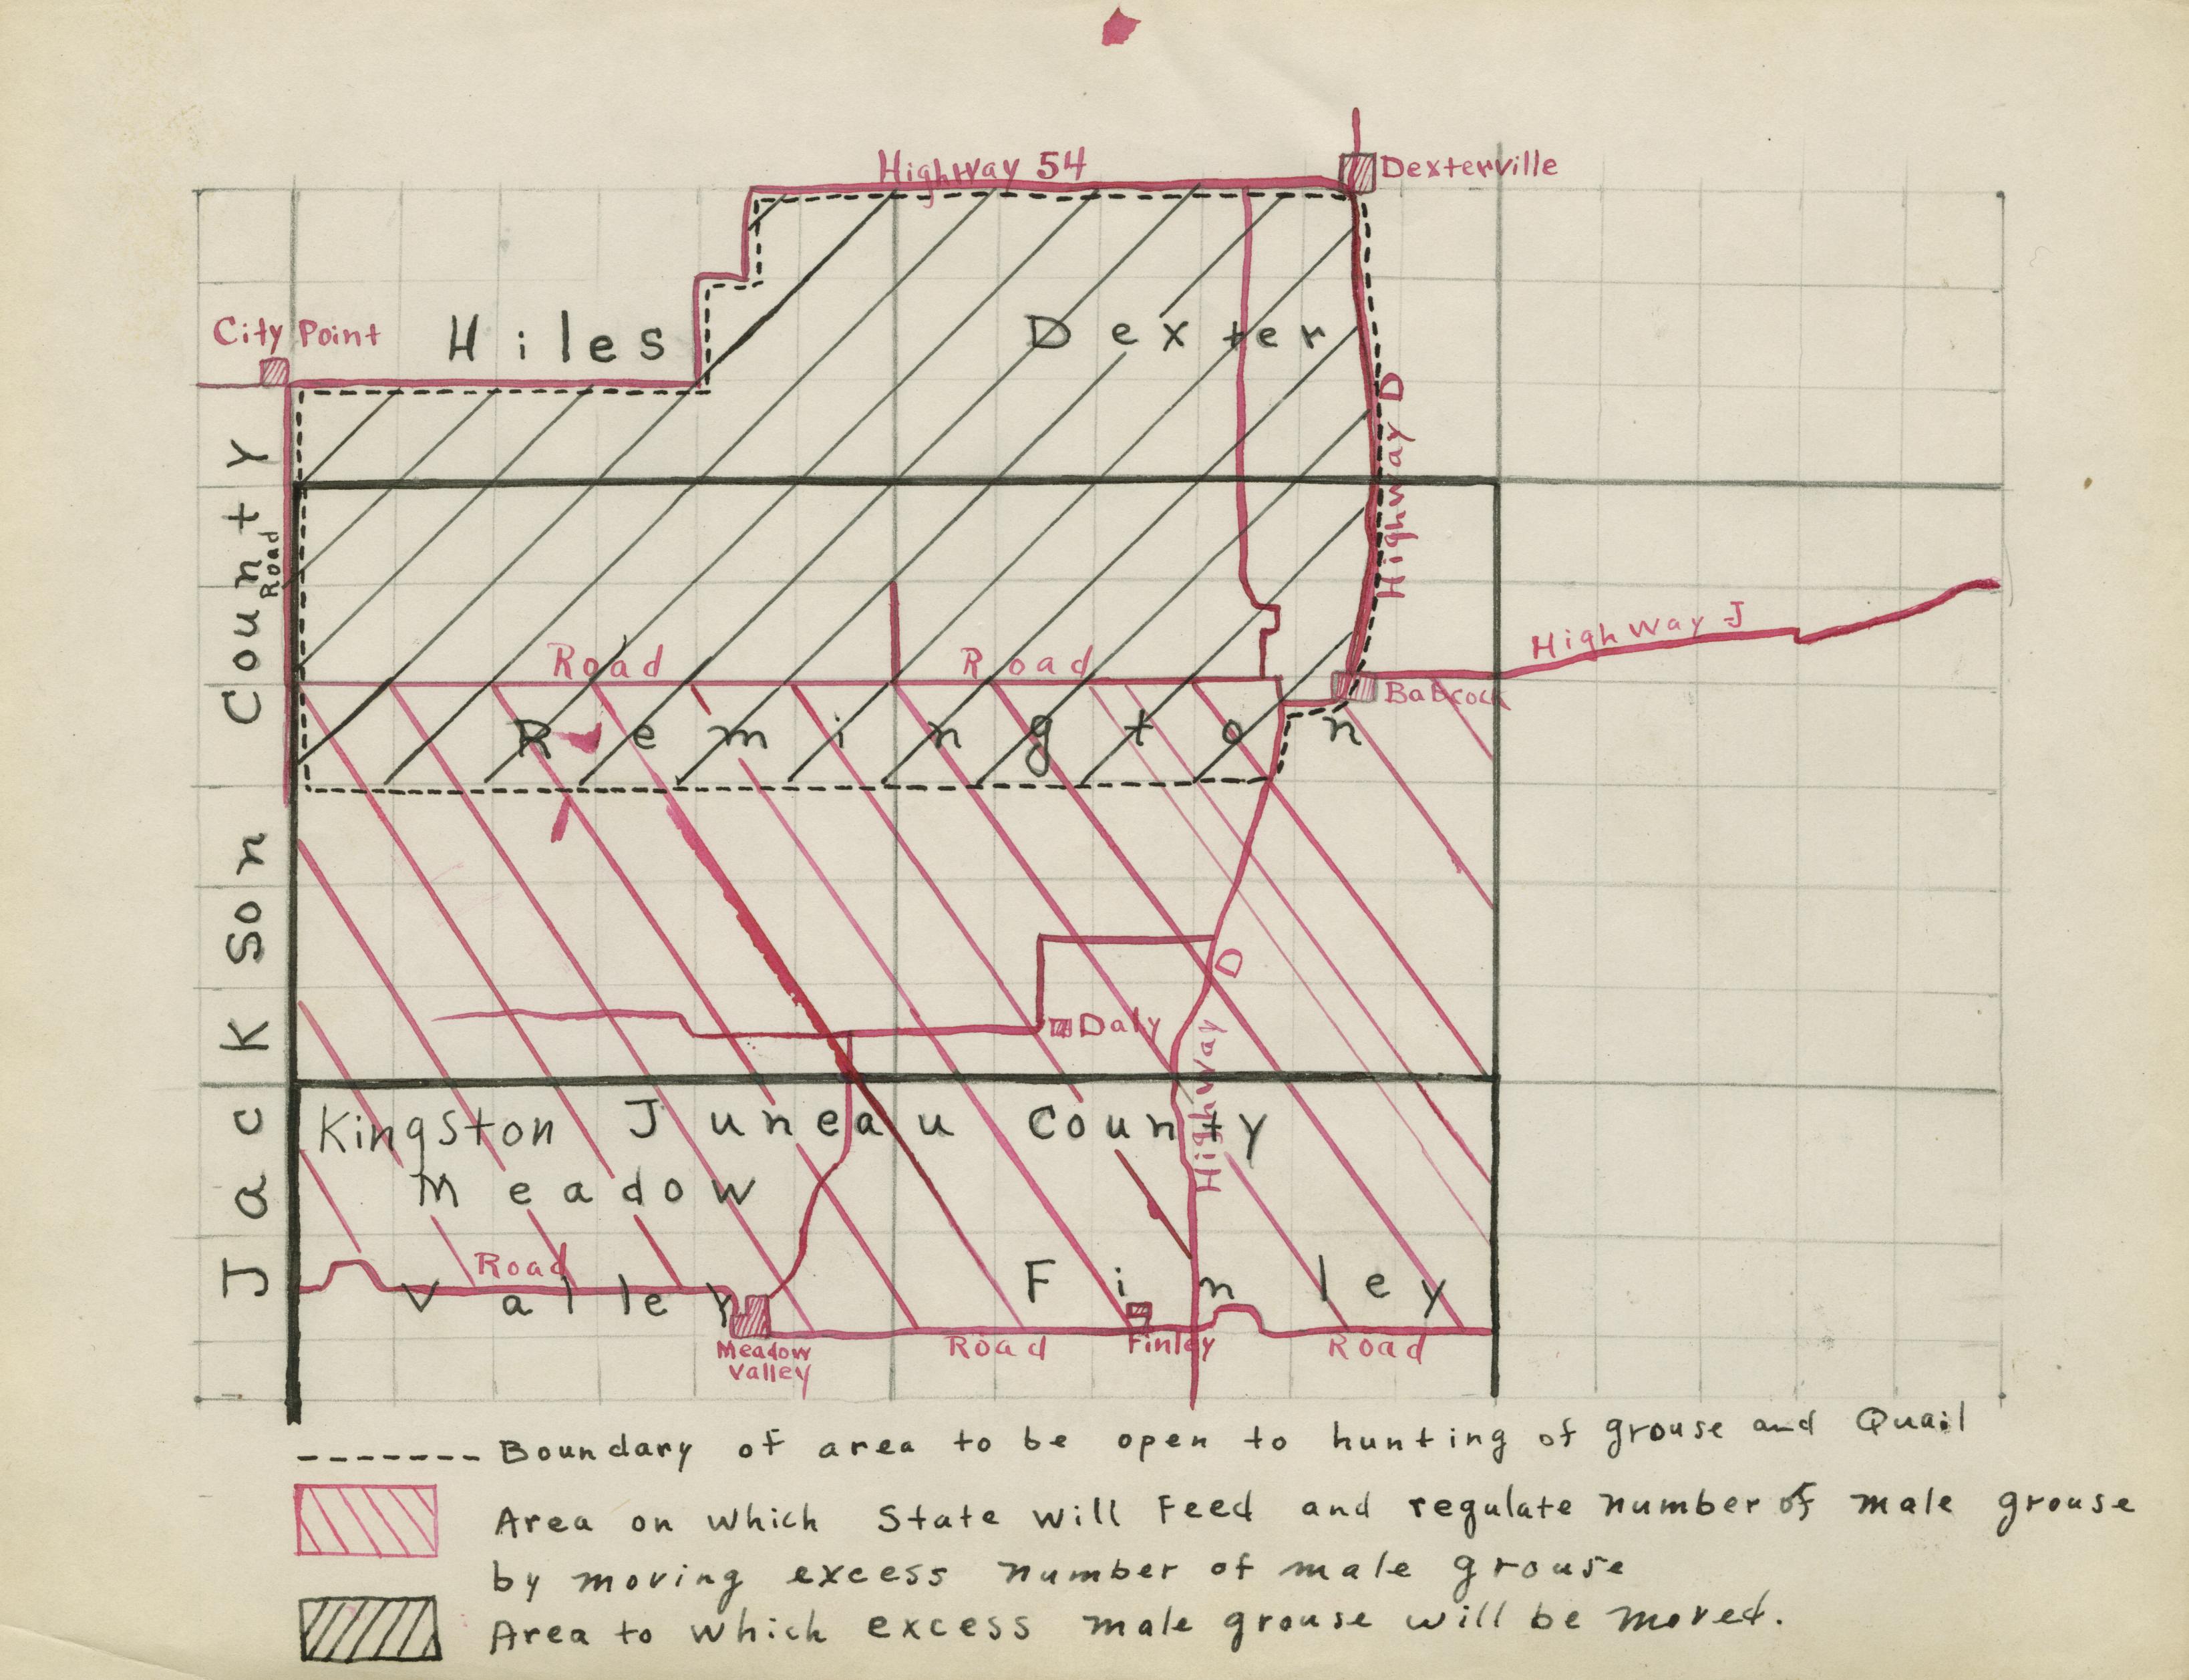 Highway 54
Dexterville
City Point
Hiles
Dexter
Highway D
County
Road
Road
Road
Highway J
Babcock
Remington
Jackson
D
Daly
Highway
Kingston
Juneau County
Meadow
Road
Valley
Finley
Meadow
Valley
Road
Finley
Road
Boundary of area to be open to hunting of grouse and Quail
Area on which State will Feed and regulate number of male grouse
by moving excess number of male grouse
Area to which excess male grouse will be moved.